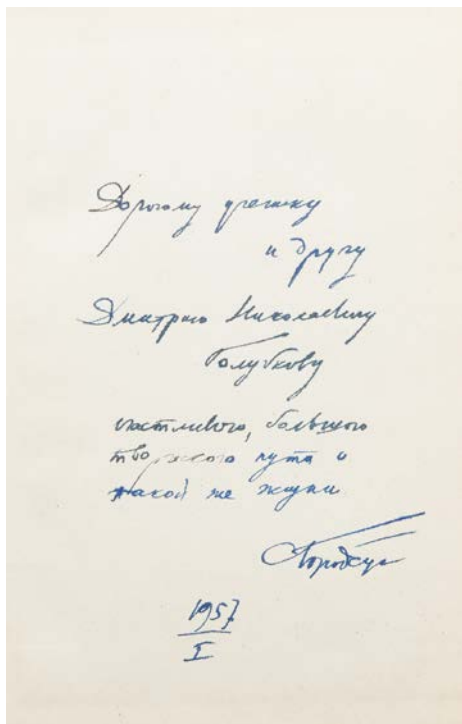 Дорогому ученику
и другу
Дмитрию Николаевичу
Голубкову
счастливого, большого
творческого пути и
такой же жизни
1957
I